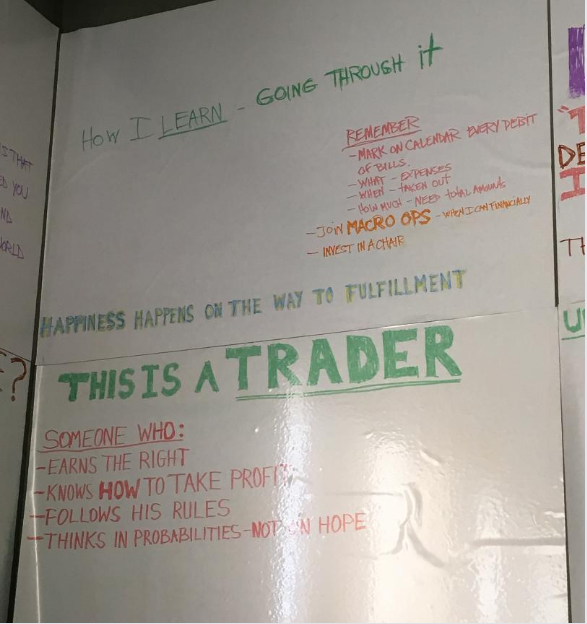 HOW I LEARN - GOING THROUGH it
REMEMBER
- MARK ON CALENDAR EVERY DEBIT
OF BILLS.
- WHAT - EXPENSES
- WHEN - TAKEN OUT
- HOW MUCH - NEED TOTAL AMOUNTS
- JOIN MACRO OPS - WHEN I CAN FINANCIALLY
- INVEST IN A CHAIR
HAPPINESS HAPPENS ON THE WAY TO FULFILLMENT
THIS IS A TRADER
SOMEONE WHO:
- EARNS THE RIGHT
- KNOWS HOW TO TAKE PROFITS
- FOLLOWS HIS RULES
- THINKS IN PROBABILITIES - NOT ON HOPE
S THAT
YOU
ND
WORLD
E?
DE
I
TH
U